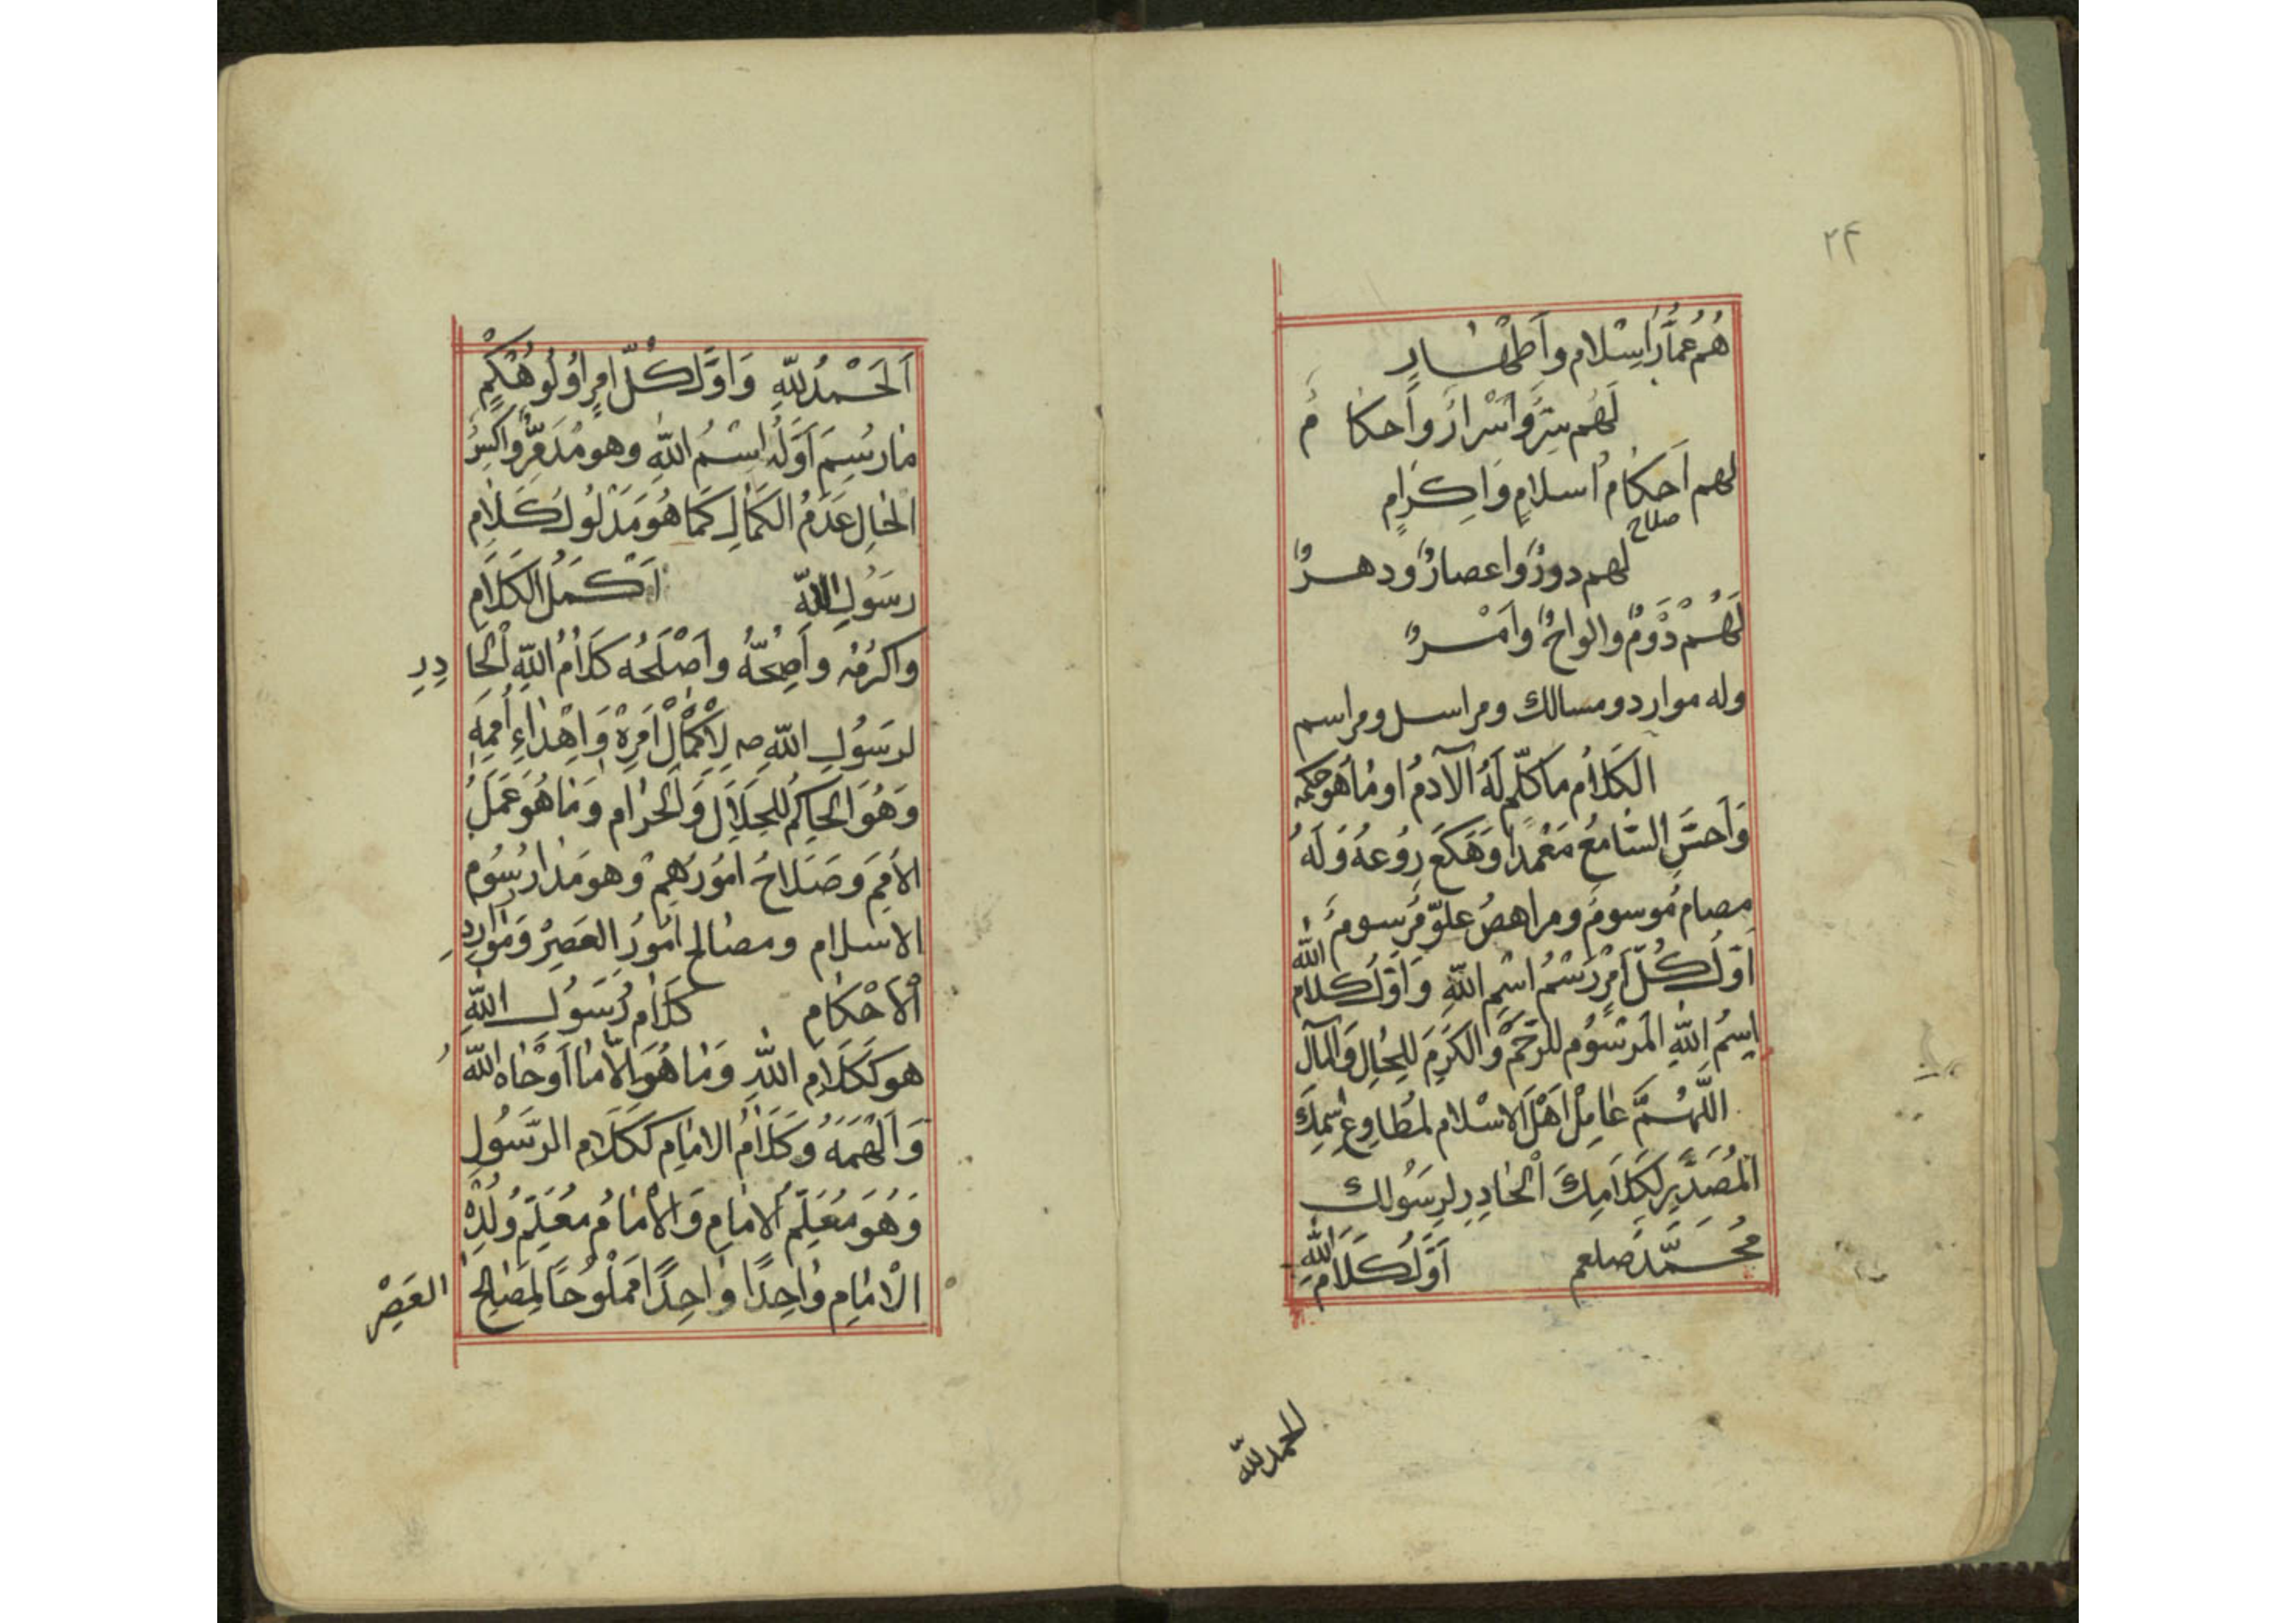 ٢٤
هُم عُمَّارُ اِسْلام وَاَطْهَارٍ
لَهُم سِرٌّ وَاَسْرَارٌ وَاَحكامٌ
لهم اَحكامُ اسلامٍ وَاِكرَامٍ
صلاح
لهم دورٌ وَاعصارٌ ودهرٌ
لَهُمْ دَوْمٌ والواحٌ وَاَمْرٌ
وله موارد ومسالك ومراسل ومراسم
الكَلَامُ ما كلّم لَهُ الآدمُ او مَا هو حكمه
وَاَحسَّ السَّامعُ مَعْمدا وَهَكَعَ رَوُعهُ وَلَهُ
مصام موسوم ومراهصُ علوّ مرسوم
اوّلُ كُلّ اَمْرٍ رَسْمُ اسْمِ اللهِ وَاَوّلُ كلام الله
اِسمُ اللهِ المَرسُوم للرّحم وَالكَرَمِ لِلحَالِ وَالمآل
اللَّهُمَّ عَامِلْ اَهْلَ الاسْلام لمُطَاوِعِ اسمِكَ
المُصَدَّرِ لِكَلَامِكَ الْحَادِرِ لِرَسُولك
مُحَمَّد صلعم اَوَّلُ كَلَامِ اللهِ
الحمد لله
اَلحَمْدُ لِلّهِ وَاَوَّلُ كُلّ اَمرٍ اُولُو حُكْمٍ
مَا رُسِمَ اَوّلُهُ اِسْمُ اللهِ وهو مُدَمّرٌ وَاَكسَرُ
الحَالِ عَدَمُ الكَمَالِ كَمَا هُوَ مَدْلُولُ كَلَامِ
رَسُولِ اللهِ اَكْمَلُ الكَلَامِ
واكرَمُه وَاَصَحُّهُ وَاَصْلَحُه كَلَامُ اللهِ الْحَادِرِ
لرسَولِ اللهِ صـ لِاِكْمَالِ اَمْرِهْ وَاِهْدَاءِ اُممِه
وَهُوَ الحَاكِمُ للِحَلَالِ وَالحَرَامِ وَمَا هُوَ عَمَلُ
الأمَمِ وَصَلَاحُ اُمُورِهِمْ وَهو مَدَارُ رسُومِ
الاسلام ومصالح اُمُورِ العَصِرْ وَمَوَارِدِ
الْاَحْكَامِ كلَامُ رَسُولِ اللهِ
هو كَكَلَامِ اللهِ وَمَا هُوَ اِلّا مَا اَوْحَاهُ اللهُ
وَاَلْهَمَهُ وَكَلَامُ الامَامِ كَكَلَامِ الرّسُولِ
وَهُوَ مُعَلِّمُ الْامَامِ وَالْاِمَامُ مُعَلِّمُ وُلْدِهْ
الْاِمَامِ وَاحِدًا وَاحِدًا مَمْلُوحًا لِمَصَالِحِ العَصِرْ